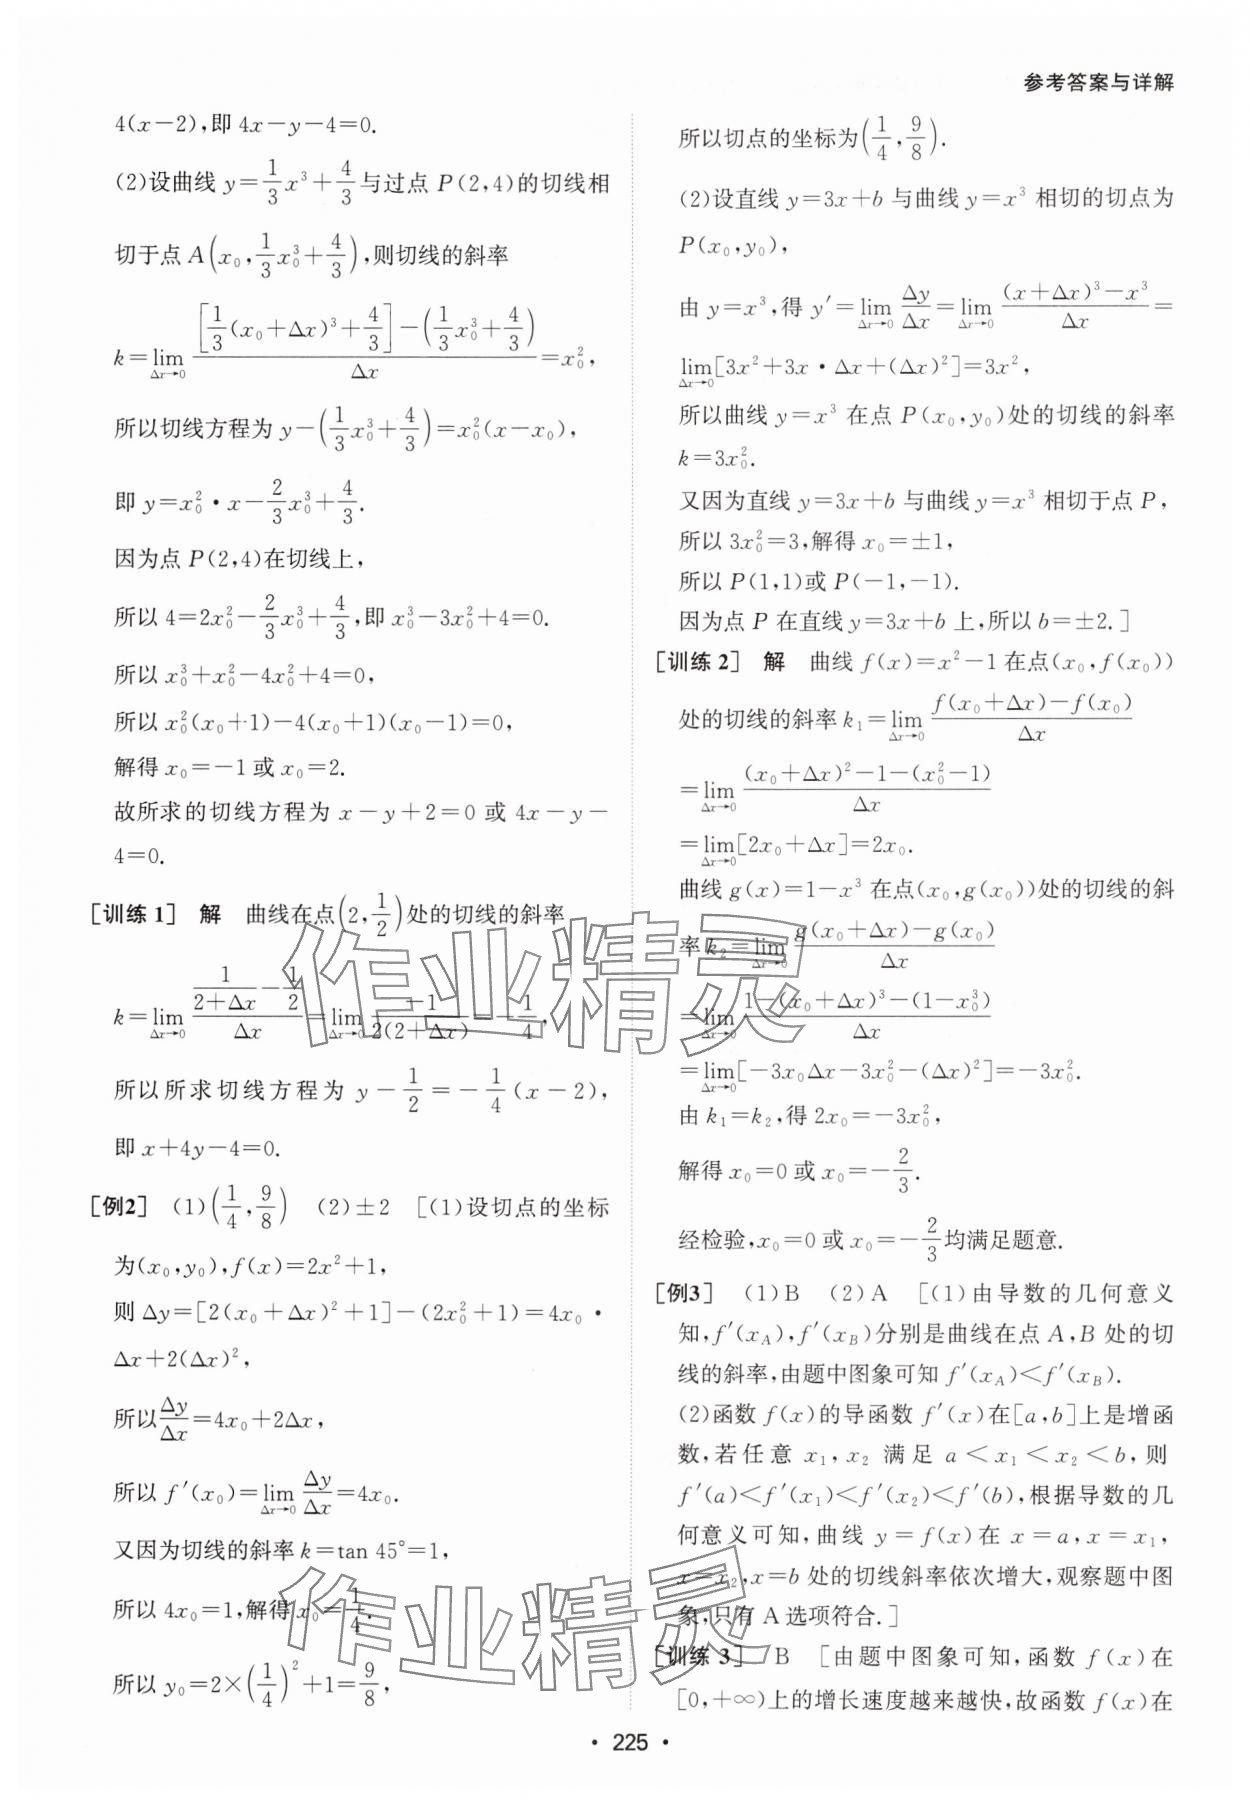 参考答案与详解
4(x-2),即 4x-y-4=0.
(2)设曲线 y=\frac{1}{3}x³+\frac{4}{3}与过点 P(2,4)的切线相
切于点 A(x₀,\frac{1}{3}x₀³+\frac{4}{3}),则切线的斜率
k=\lim_{Δx→0}\frac{[\frac{1}{3}(x₀+Δx)³+\frac{4}{3}]-(\frac{1}{3}x₀³+\frac{4}{3})}{Δx}=x₀²,
所以切线方程为 y-(\frac{1}{3}x₀³+\frac{4}{3})=x₀²(x-x₀),
即 y=x₀²·x-\frac{2}{3}x₀³+\frac{4}{3}.
因为点 P(2,4)在切线上,
所以 4=2x₀²-\frac{2}{3}x₀³+\frac{4}{3},即 x₀³-3x₀²+4=0.
所以 x₀³+x₀²-4x₀²+4=0,
所以 x₀²(x₀+1)-4(x₀+1)(x₀-1)=0,
解得 x₀=-1 或 x₀=2.
故所求的切线方程为 x-y+2=0 或 4x-y-
4=0.
[训练1] 解 曲线在点(2,\frac{1}{2})处的切线的斜率
k=\lim_{Δx→0}\frac{\frac{1}{2+Δx}-\frac{1}{2}}{Δx}=\lim_{Δx→0}\frac{-1}{2(2+Δx)}=-\frac{1}{4},
所以所求切线方程为 y-\frac{1}{2}=-\frac{1}{4}(x-2),
即 x+4y-4=0.
[例2] (1)(\frac{1}{4},\frac{9}{8}) (2)±2 [(1)设切点的坐标
为(x₀,y₀),f(x)=2x²+1,
则 Δy=[2(x₀+Δx)²+1]-(2x₀²+1)=4x₀·
Δx+2(Δx)²,
所以\frac{Δy}{Δx}=4x₀+2Δx,
所以 f′(x₀)=\lim_{Δx→0}\frac{Δy}{Δx}=4x₀.
又因为切线的斜率 k=tan 45°=1,
所以 4x₀=1,解得 x₀=\frac{1}{4}.
所以 y₀=2×(\frac{1}{4})²+1=\frac{9}{8},
所以切点的坐标为(\frac{1}{4},\frac{9}{8}).
(2)设直线 y=3x+b 与曲线 y=x³ 相切的切点为
P(x₀,y₀),
由 y=x³,得 y′=\lim_{Δx→0}\frac{Δy}{Δx}=\lim_{Δx→0}\frac{(x+Δx)³-x³}{Δx}=
\lim_{Δx→0}[3x²+3x·Δx+(Δx)²]=3x²,
所以曲线 y=x³ 在点 P(x₀,y₀)处的切线的斜率
k=3x₀².
又因为直线 y=3x+b 与曲线 y=x³ 相切于点 P,
所以 3x₀²=3,解得 x₀=±1,
所以 P(1,1)或 P(-1,-1).
因为点 P 在直线 y=3x+b 上,所以 b=±2.]
[训练2] 解 曲线 f(x)=x²-1 在点(x₀,f(x₀))
处的切线的斜率 k₁=\lim_{Δx→0}\frac{f(x₀+Δx)-f(x₀)}{Δx}
=\lim_{Δx→0}\frac{(x₀+Δx)²-1-(x₀²-1)}{Δx}
=\lim_{Δx→0}[2x₀+Δx]=2x₀.
曲线 g(x)=1-x³ 在点(x₀,g(x₀))处的切线的斜
率 k₂=\lim_{Δx→0}\frac{g(x₀+Δx)-g(x₀)}{Δx}
=\lim_{Δx→0}\frac{1-(x₀+Δx)³-(1-x₀³)}{Δx}
=\lim_{Δx→0}[-3x₀Δx-3x₀²-(Δx)²]=-3x₀².
由 k₁=k₂,得 2x₀=-3x₀²,
解得 x₀=0 或 x₀=-\frac{2}{3}.
经检验,x₀=0 或 x₀=-\frac{2}{3}均满足题意.
[例3] (1)B (2)A [(1)由导数的几何意义
知,f′(x_A),f′(x_B)分别是曲线在点 A,B 处的切
线的斜率,由题中图象可知 f′(x_A)<f′(x_B).
(2)函数 f(x)的导函数 f′(x)在[a,b]上是增函
数,若任意 x₁,x₂ 满足 a<x₁<x₂<b,则
f′(a)<f′(x₁)<f′(x₂)<f′(b),根据导数的几
何意义可知,曲线 y=f(x)在 x=a,x=x₁,
x=x₂,x=b 处的切线斜率依次增大,观察题中图
象,只有 A 选项符合.]
[训练 3] B [由题中图象可知,函数 f(x)在
[0,+∞)上的增长速度越来越快,故函数 f(x)在
作业精灵
作业精灵
· 225 ·